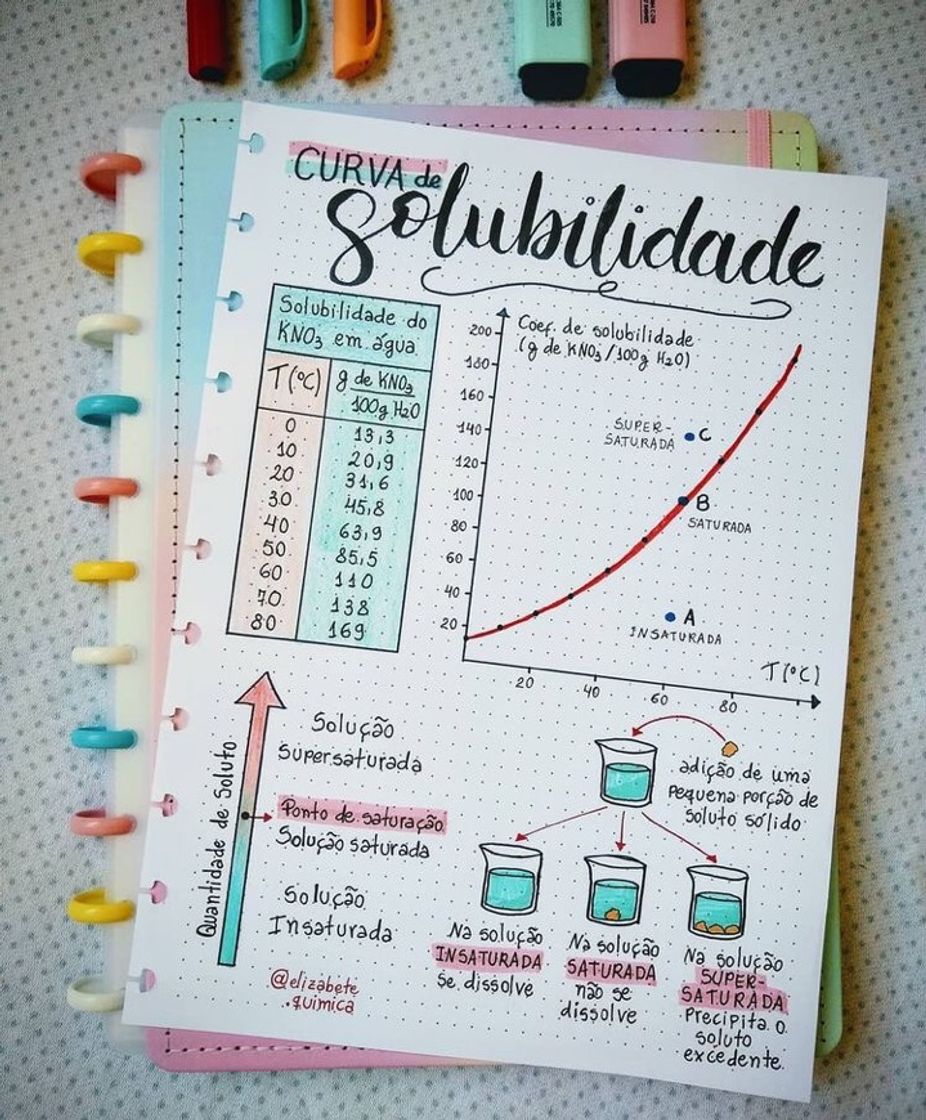 CURVA de
Solubilidade
Solubilidade do
KNO₃ em água
T(°C)
g de KNO₃
100g H₂O
0 13,3
10 20,9
20 31,6
30 45,8
40 63,9
50 85,5
60 110
70 138
80 169
Coef. de solubilidade
(g de KNO₃/100g H₂O)
200
180
160
140
120
100
80
60
40
20
SUPER-
SATURADA
C
B
SATURADA
A
INSATURADA
T(°C)
20 40 60 80
Quantidade de Soluto
Solução
Supersaturada
Ponto de saturação
Solução saturada
Solução
Insaturada
@elizabete
.quimica
adição de uma
pequena porção de
soluto sólido
Na solução
INSATURADA
se dissolve
Na solução
SATURADA
não se
dissolve
Na solução
SUPER-
SATURADA
precipita o
soluto
excedente.